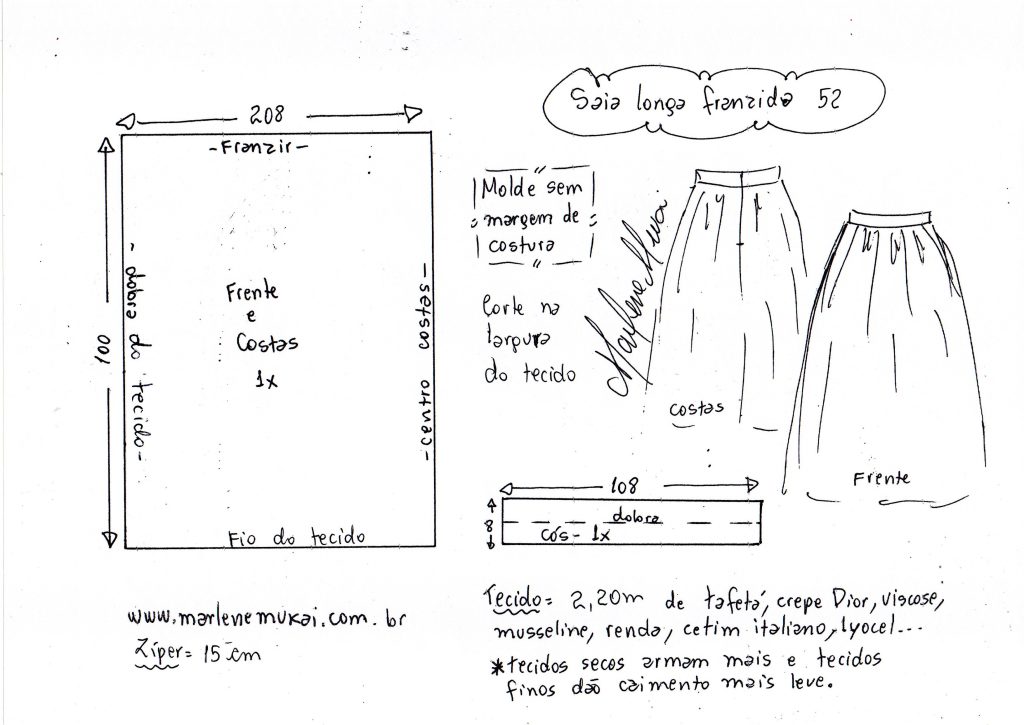 Saia longa franzida 52
208
-Franzir-
100
-dobra do tecido-
Frente
e
Costas
1x
-centro costas-
Fio do tecido
Molde sem
margem de
costura
Corte na
largura
do tecido
Marlene Mukai
costas
Frente
108
8
dobra
cós- 1x
www.marlenemukai.com.br
Zíper= 15 cm
Tecido= 2,20m de tafetá, crepe Dior, viscose,
musseline, renda, cetim italiano, lyocel...
*tecidos secos armam mais e tecidos
finos dão caimento mais leve.